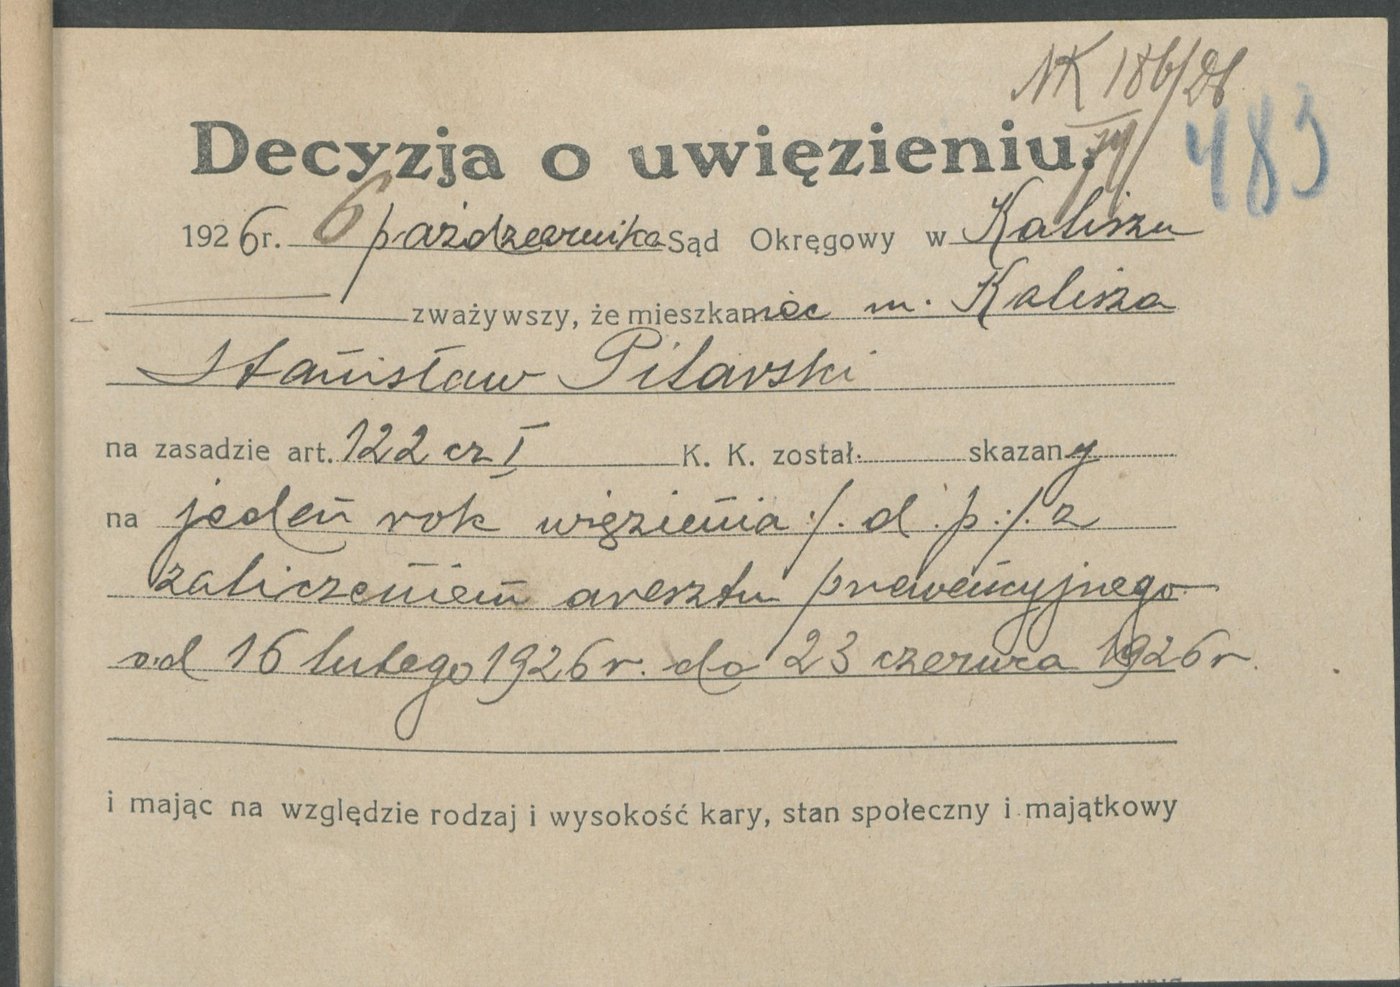 NK 186/26
483
Decyzja o uwięzieniu.
1926r. 6 października Sąd Okręgowy w Kaliszu
zważywszy, że mieszkaniec m. Kalisza
Stanisław Pilarski
na zasadzie art. 122 cz I K. K. został skazany
na jeden rok więzienia /. d. p. /. z
zaliczeniem aresztu prewencyjnego
od 16 lutego 1926 r. do 23 czerwca 1926 r.
i mając na względzie rodzaj i wysokość kary, stan społeczny i majątkowy